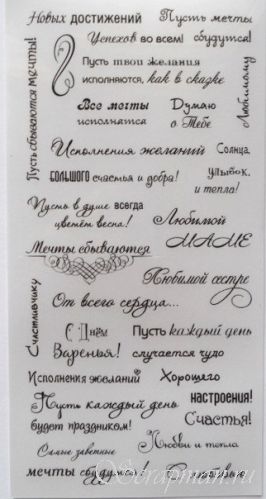 Новых достижений
Пусть мечты
сбудутся!
Успехов во всем!
Пусть сбываются мечты!
Пусть твои желания
исполняются, как в сказке
Любимому
Все мечты
исполнятся
Думаю
о Тебе
Исполнения желаний
Солнца,
улыбок,
и тепла!
большого счастья и добра!
Пусть в душе всегда
цветёт весна!
Любимой
МАМЕ
Мечты сбываются
Любимой сестре
От всего сердца...
Счастливчику
С Днём
Варенья!
Пусть каждый день
случается чудо
Исполнения желаний
Хорошего
настроения!
Пусть каждый день
будет праздником!
Счастья!
Самые заветные
мечты сбудутся!
Любви и тепла
Scrapman.ru